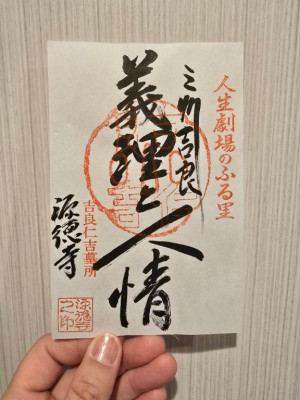 人生劇場のふる里
三州吉良
義理と人情
吉良仁吉墓所
源徳寺
源徳寺之印